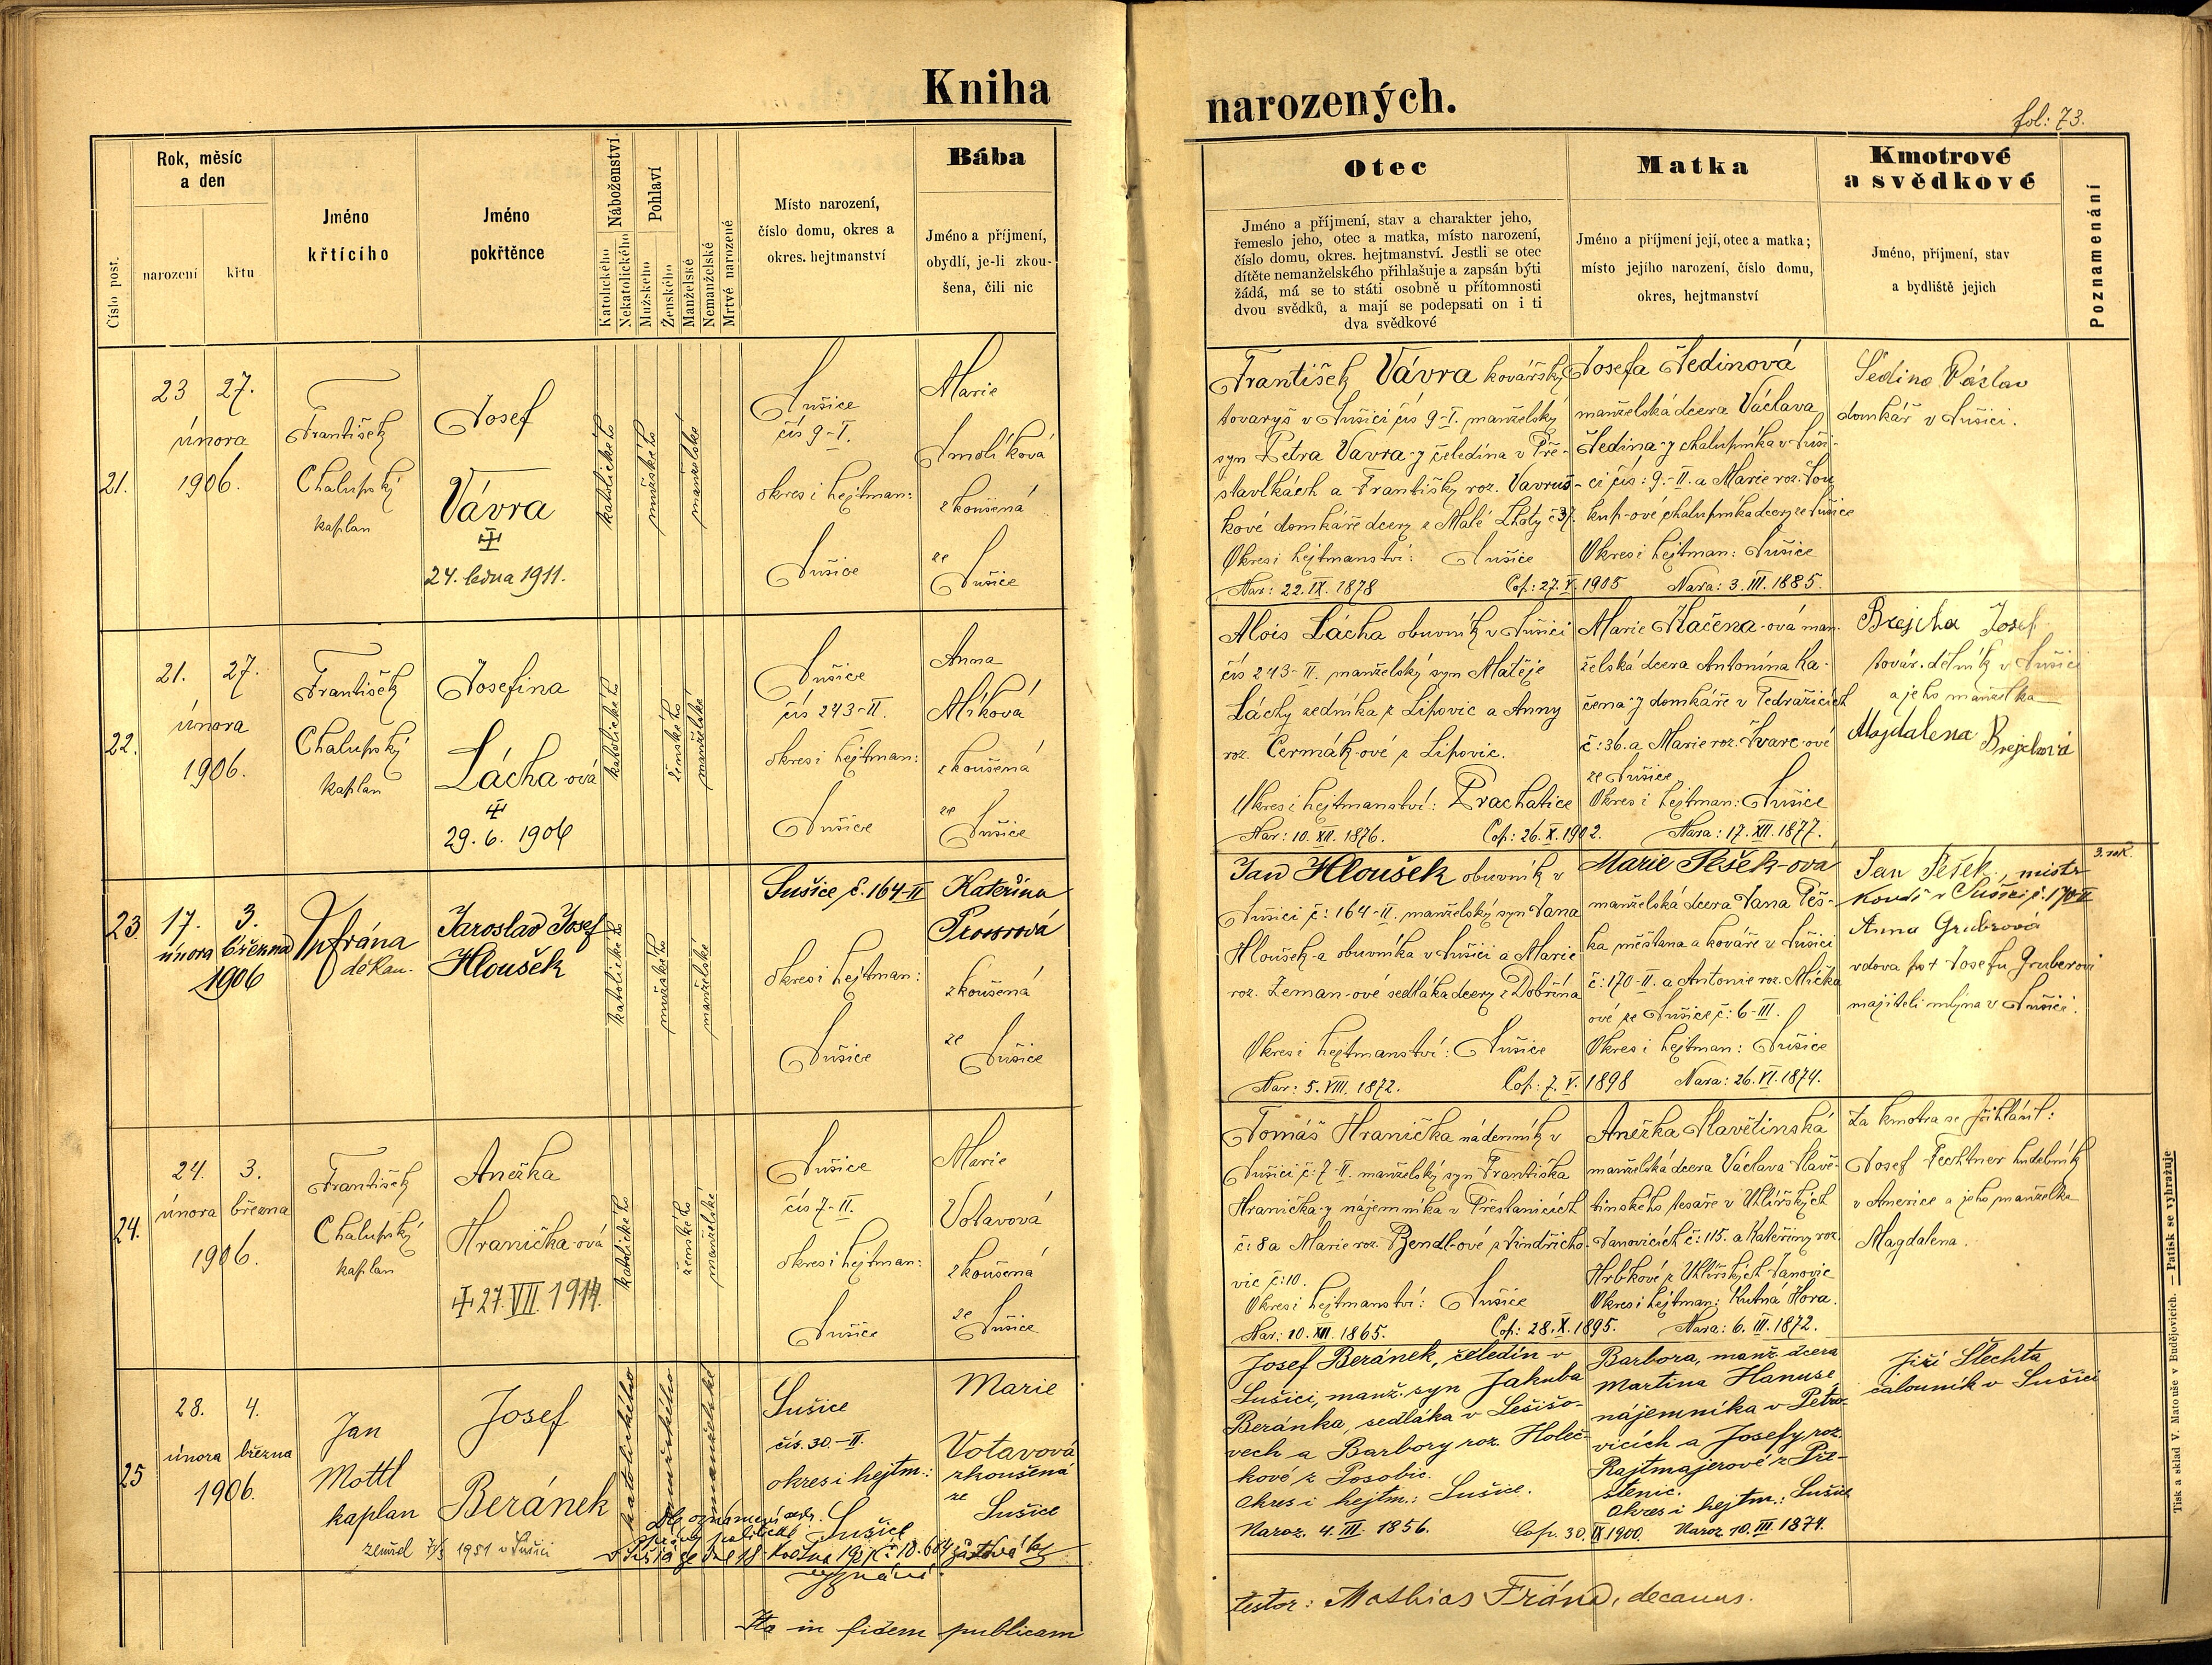 Kniha
narozených.
fol: 73.
Číslo post.
Rok, měsíc
a den
narození
křtu
Jméno
křtícího
Jméno
pokřtěnce
Náboženství
Katolického
Nekatolického
Pohlaví
Mužského
Ženského
Manželské
Nemanželské
Mrtvé narozené
Místo narození,
číslo domu, okres a
okres. hejtmanství
Bába
Jméno a příjmení,
obydlí, je-li zkou-
šena, čili nic
Otec
Jméno a příjmení, stav a charakter jeho,
řemeslo jeho, otec a matka, místo narození,
číslo domu, okres. hejtmanství. Jestli se otec
dítěte nemanželského přihlašuje a zapsán býti
žádá, má se to státi osobně u přítomnosti
dvou svědků, a mají se podepsati on i ti
dva svědkové
Matka
Jméno a příjmení její, otec a matka;
místo jejího narození, číslo domu,
okres, hejtmanství
Kmotrové
a svědkové
Jméno, příjmení, stav
a bydliště jejich
Poznamenání
21.
23 27.
února
1906.
František
Chalupský
kaplan
Josef
Vávra
24. ledna 1911.
katolického
mužského
manželské
Sušice
čís 9-I.
okres i hejtman:
Sušice
Marie
Smolíková
zkoušená
ze
Sušice
František Vávra kovářský
tovaryš v Sušici čís 9-I. manželský
syn Petra Vávra-y čeledína v Pře-
stavlkách a Františky roz. Vavruš-
kové domkáře dcery z Malé Lhoty č 37.
Okres i hejtmanství: Sušice
Nar: 22. IX. 1878
Cop: 27. V. 1905
Josefa Šedinová
manželská dcera Václava
Šedina-y chalupníka v Suši-
ci čís: 9.-II. a Marie roz. Sou
kup-ové chalupníka dcery ze Sušice
Okres i hejtman: Sušice
Nara: 3. III. 1885.
Šedina Václav
domkář v Sušici.
22.
21. 27.
února
1906.
František
Chalupský
kaplan
Josefina
Lácha-ová
29. 6. 1906
katolického
ženského
manželské
Sušice
čís 243-II.
okres i hejtman:
Sušice
Anna
Míková
zkoušená
ze
Sušice
Alois Lácha obuvník v Sušici
čís 243-II. manželský syn Matěje
Láchy zedníka z Lipovic a Anny
roz. Čermák-ové z Lipovic.
Okres i hejtmanství: Prachatice
Nar: 10. XII. 1876.
Cop: 26. X. 1902.
Marie Kačena-ová man-
želská dcera Antonína Ka-
čena-y domkáře v Tedražicích
č: 36. a Marie roz. Švarc-ové
ze Sušice
Okres i hejtman: Sušice
Nara: 17. XII. 1877.
Brejcha Josef
továr. dělník v Sušici
a jeho manželka
Magdalena Brejchová
23.
17. 3.
února března
1906
děkan.
Jaroslav Josef
Hloušek
katolického
mužského
manželské
Sušice č. 164-II
okres i hejtman:
Sušice
Kateřina
zkoušená
ze
Sušice
Jan Hloušek obuvník v
Sušici č: 164-II. manželský syn Jana
Hloušek-a obuvníka v Sušici a Marie
roz. Zeman-ové sedláka dcery z Dobřína
Okres i hejtmanství: Sušice
Nar: 5. VIII. 1872.
Cop: 7. V. 1898
Marie Pešek-ová
manželská dcera Jana Peš-
ka měšťana a kováře v Sušici
č: 170-II. a Antonie roz. Mička
ové ze Sušice č: 6-III.
Okres i hejtman: Sušice
Nara: 26. VI. 1874.
Jan Pešek, mistr
kovář v Sušici č. 170-II
Anna Gruberová
vdova po † Josefu Gruberovi
majiteli mlýna v Sušici.
24.
24. 3.
února března
1906.
František
Chalupský
kaplan
Anežka
Hranička-ová
27. VII. 1914.
katolického
ženského
manželské
Sušice
čís 7-II.
okres i hejtman:
Sušice
Marie
Votavová
zkoušená
ze
Sušice
Tomáš Hranička nádenník v
Sušici č: 7-II. manželský syn Františka
Hranička-y nájemníka v Přestanicích
č: 8 a Marie roz. Bendl-ové z Jindřicho-
vic č: 10.
Okres i hejtmanství: Sušice
Nar: 10. XII. 1865.
Cop: 28. X. 1895.
Anežka Slavětinská
manželská dcera Václava Slavě-
tinského tesaře v Uhlířských
Janovicích č: 115. a Kateřiny roz.
Hrbkové z Uhlířských Janovic
Okres i hejtman: Kutná Hora.
Nara: 6. III. 1872.
Za kmotra se přihlásil:
Josef Fechtner hudebník
v Americe a jeho manželka
Magdalena.
25
28. 4.
února března
1906.
Jan
Mottl
kaplan
Josef
Beránek
zemřel 1951 v Sušici
katolického
mužského
manželské
Sušice
čís. 30.-II.
okres i hejtm.:
Sušice
Marie
Votavová
zkoušená
ze
Sušice
Josef Beránek, čeledín v
Sušici, manž. syn Jakuba
Beránka, sedláka v Lešišo-
vech a Barbory roz. Holeč-
kové z Posobic.
Okres i hejtm.: Sušice.
Naroz. 4. III. 1856.
Cop. 30. IX 1900.
Barbora, manž. dcera
Martina Hanuse,
nájemníka v Petro-
vicích a Josefy roz.
Rajtmajerové z Pře-
stenic.
Okres i hejtm.: Sušice
Naroz 10. III. 1874.
Jiří Šlechta
čalouník v Sušici
Ita in fidem publicam
testor: Mathias Frána, decanus.
Tisk a sklad V. Matouše v Budějovicích. — Patisk se vyhražuje